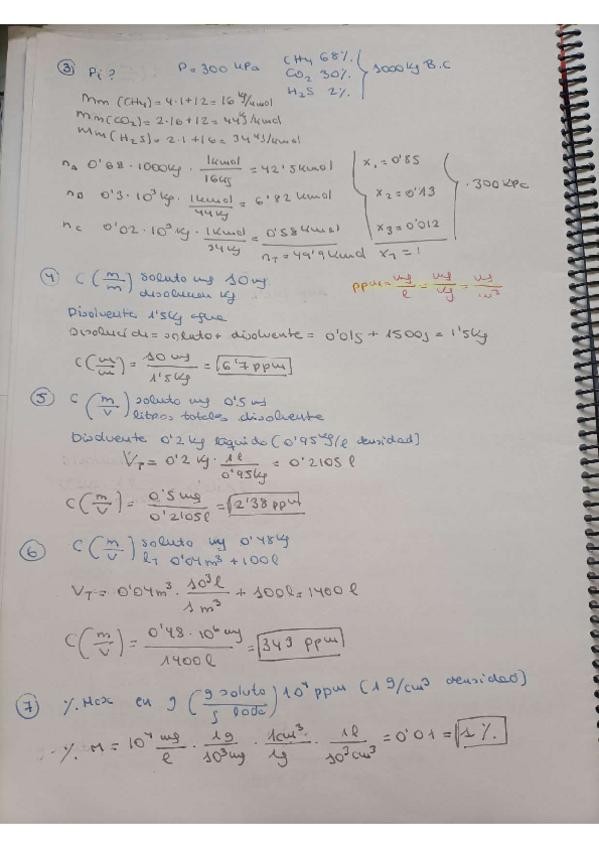 ③ Pi? P = 300 kPa CH4 68% CO2 30% H2S 2% } 1000 kg B.C
Mm (CH4) = 4·1+12 = 16 kg/kmol
Mm (CO2) = 2·16+12 = 44 kg/kmol
Mm (H2S) = 2·1+16 = 34 kg/kmol
nA 0'68·1000kg · 1kmol/16kg = 42'5kmol x1 = 0'85
nB 0'3·10³kg · 1kmol/44kg = 6'82 kmol x2 = 0'13 ·300kPa
nC 0'02·10³kg · 1kmol/34kg = 0'58 kmol x3 = 0'012
nT = 49'9 kmol xT = 1
④ C (m/m) soluto mg 10 mg
disolucion kg
ppm = mg/l = mg/kg = mg/m³
Disolvente 1'5kg agua
Disolución = soluto + disolvente = 0'01g + 1500g = 1'5kg
C(m/m) = 10 mg/1'5kg = 6'7 ppm
⑤ C (m/v) soluto mg 0'5 mg
litros totales disolvente
Disolvente 0'2 kg líquido (0'95 kg/l densidad)
VT = 0'2 kg · 1l/0'95kg = 0'2105 l
C(m/v) = 0'5mg/0'2105l = 2'38 ppm
⑥ C (m/v) soluto mg 0'48kg
lT 0'04m³ + 100l
VT = 0'04m³ · 10³l/1m³ + 100l = 1400 l
C(m/v) = 0'48·10⁶mg/1400l = 343 ppm
⑦ % en g (g soluto/g lodo) 10⁴ ppm (1g/cm³ densidad)
% M = 10⁴ mg/l · 1g/10³mg · 1cm³/1g · 1l/10³cm³ = 0'01 = 1%